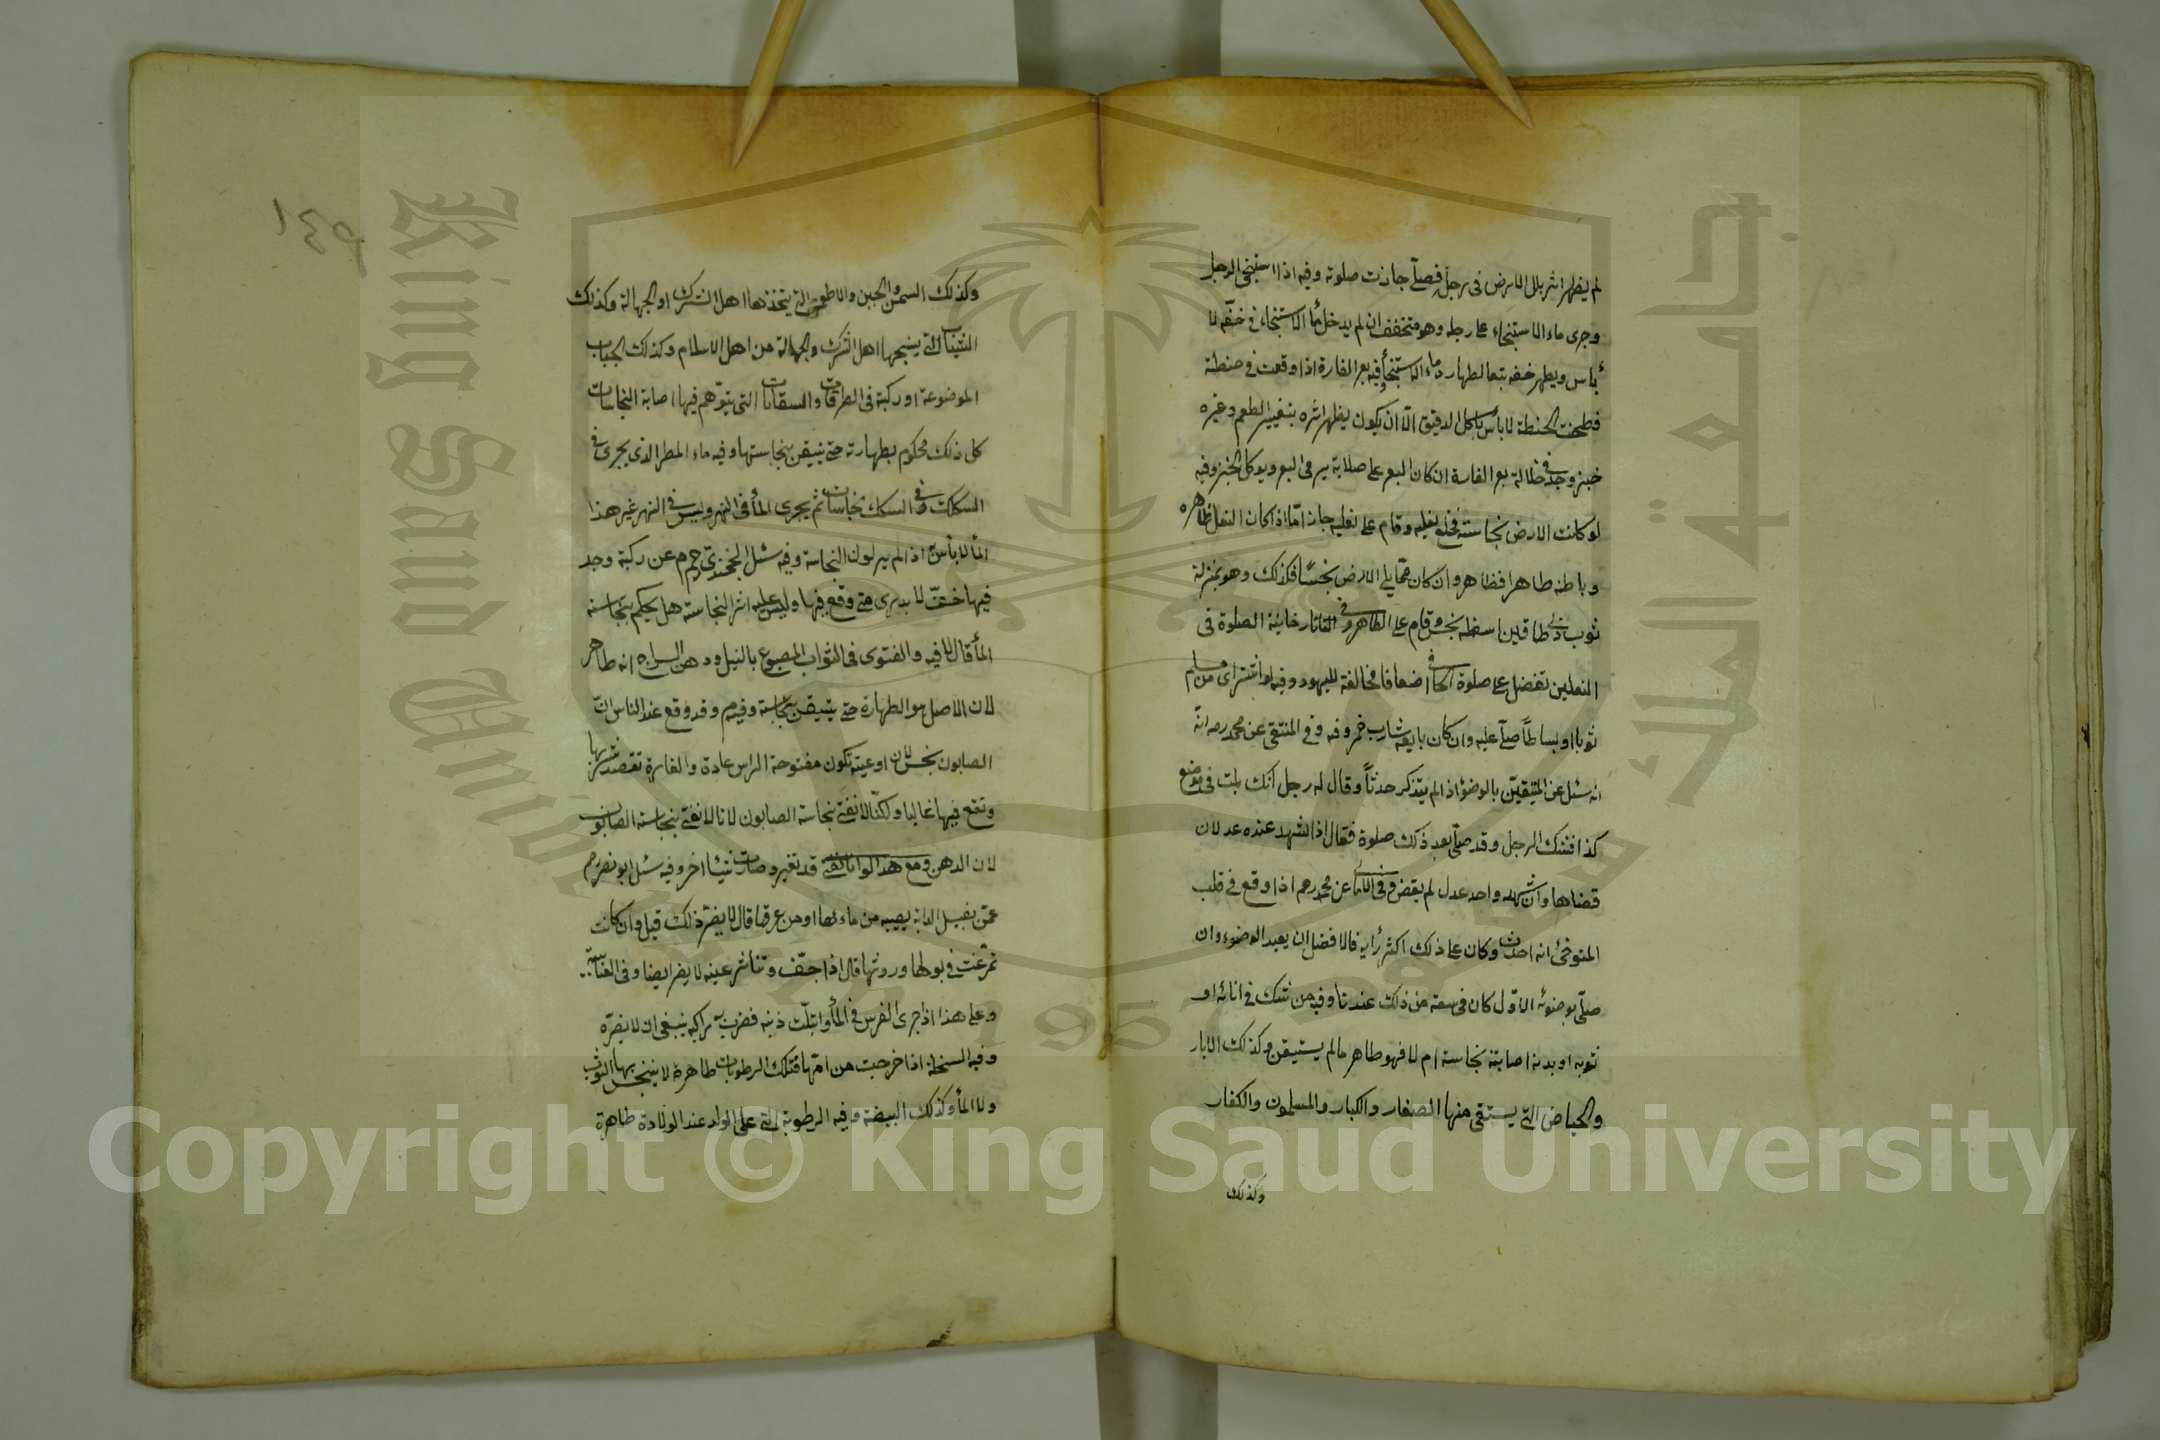 لم يظهر اثر بلل الارض فى رجله فصلّى جازت صلوته وفيه اذا استنجى الرجل
وجرى ماء الاستنجاء على رجله وهو متخفف ان لم يدخل ماء الاستنجاء فى خفّه لا
بأس ويطهر خفه تبعا لطهارة ماء الاستنجاء وفيه بعر الفارة اذا وقعت فى حنطة
فطحنت الحنطة لا بأس باكل الدقيق الّا ان يكون يظهر اثره بتغيير الطعم وغيره
خبز وجد فى خلاله بعر الفارة ان كان البعر على صلابة يرمى البعر ويوكل الخبز وفيه
لو كانت الارض نجاسته فخلع نعليه وقام على نعليه جاز امّا اذا كان النعل ظاهره
وباطنه طاهرا فظاهر وان كان ممّا يلى الارض نجسًا فكذلك وهو بمنزلة
ثوب ذى طاقين اسفله نجس وقام على الطاهر وفى التاتارخانية الصلوة فى
النعلين تفضل على صلوة الحافى اضعافا مخالفة لليهود وفيه لو اشترى من مسلم
ثوبا او بساطًا صلّى عليه وان كان بايعه شارب خمر وفيه وفى المنتقى عن محمد رحه انّه
انه سئل عن المتيقّن بالوضوء اذا لم يتذكر حدثًا وقال له رجل انك بلت فى موضع
كذا فشك الرجل وقد صلّى بعد ذلك صلوة فقال اذا شهد عنده عدلان
قضاها وان شهد واحد عدل لم يقض وفى عن محمد رحم اذا وقع فى قلب
المتوضئ انه احدث وكان على ذلك اكثر رأيه فالافضل ان يعيد الوضوء وان
صلّى بوضوئه الاوّل كان فى سعة من ذلك عندنا وفيه من شك فى انائه او
ثوبه او بدنه اصابته نجاسة ام لا فهو طاهر ما لم يستيقن وكذلك الابار
والحياض التى يستقى منها الصغار والكبار والمسلمون والكفار
وكذلك
١٤٩
وكذلك السمن والجبن والاطعمة التى يتخذها اهل الشرك او الجهالة وكذلك
الثياب التى ينسجها اهل الشرك والجهالة من اهل الاسلام وكذلك الجباب
الموضوعة او ركية فى الطرقات والسقايات التى يتوهم فيها اصابة النجاسات
كل ذلك محكوم بطهارته حتى يتيقن بنجاستها وفيه ماء المطر الذى يجرى فى
السكك وفى السكك نجاسات ثم يجرى الماء فى النهر وليس فى النهر غير هذا
الماء لا بأس اذا لم ير لون النجاسة وفيه سئل الخجندى رحم عن ركية وجد
فيها خفّ لا يدرى متى وقع فيها وليس عليه اثر النجاسة هل يحكم بنجاسة
الماء قال لا فيه والفتوى فى الثواب المصبوغ بالنيل ودهن السراج انه طاهر
لان الاصل هو الطهارة حتى يتيقن بنجاسة وفيه م وقد وقع عند الناس انّ
الصابون نجس لان اوعيته تكون مفتوحة الراس عادة والفارة تقصد شربها
وتقع فيها غالبا ولكنّا لا نفتى بنجاسة الصابون لانا لا نفتى بنجاسة الصابون
لان الدهن ومع هذا لو انا نفتى قد تغير وصارت شيئا اخر وفيه سئل ابو نصر رحم
عمّن يغسل الدابة يصيبه من ماءها او من عرقها قال لا يضرّ ذلك قيل وان كانت
تمرّغت فى بولها وروثها قال اذا جفّ وتناثر عينه لا يضر ايضا وفى العتابية
وعلى هذا اذا جرى الفرس فى الماء وابتلّت ذنبه فضرب به راكبه ينبغى ان لا يضرّه
وفيه السخلة اذا خرجت من امّها فتلك الرطوبات طاهرة لا يتنجس بها الثوب
ولا الماء وكذلك البيضة وفيه الرطوبة التى على الولد عند الولادة طاهرة
King Saud University
جامعة الملك سعود
1957
Copyright © King Saud University